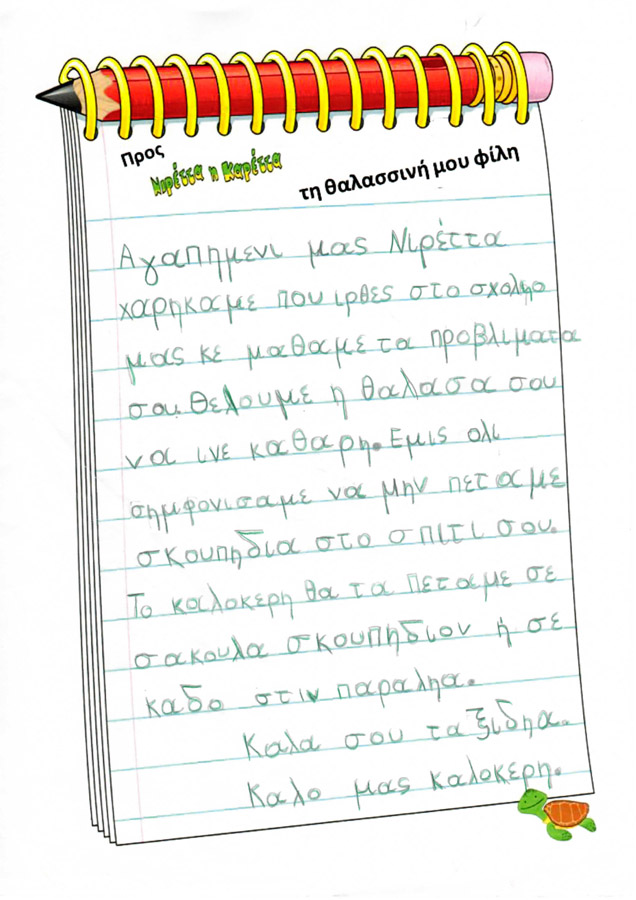 Προς
Νιρέττα η Καρέττα
τη θαλασσινή μου φίλη
Αγαπημενι μας Νιρέττα
χαρηκαμε που ιρθες στο σχοληο
μας κε μαθαμε τα προβλιματα
σου. Θελουμε η θαλασα σου
να ινε καθαρη. Εμις ολι
σημφονισαμε να μην πεταμε
σκουπηδια στο σπιτι σου.
Το καλοκερη θα τα πεταμε σε
σακουλα σκουπηδιον ή σε
καδο στιν παραληα.
Καλα σου ταξιδηα.
Καλο μας καλοκερη.